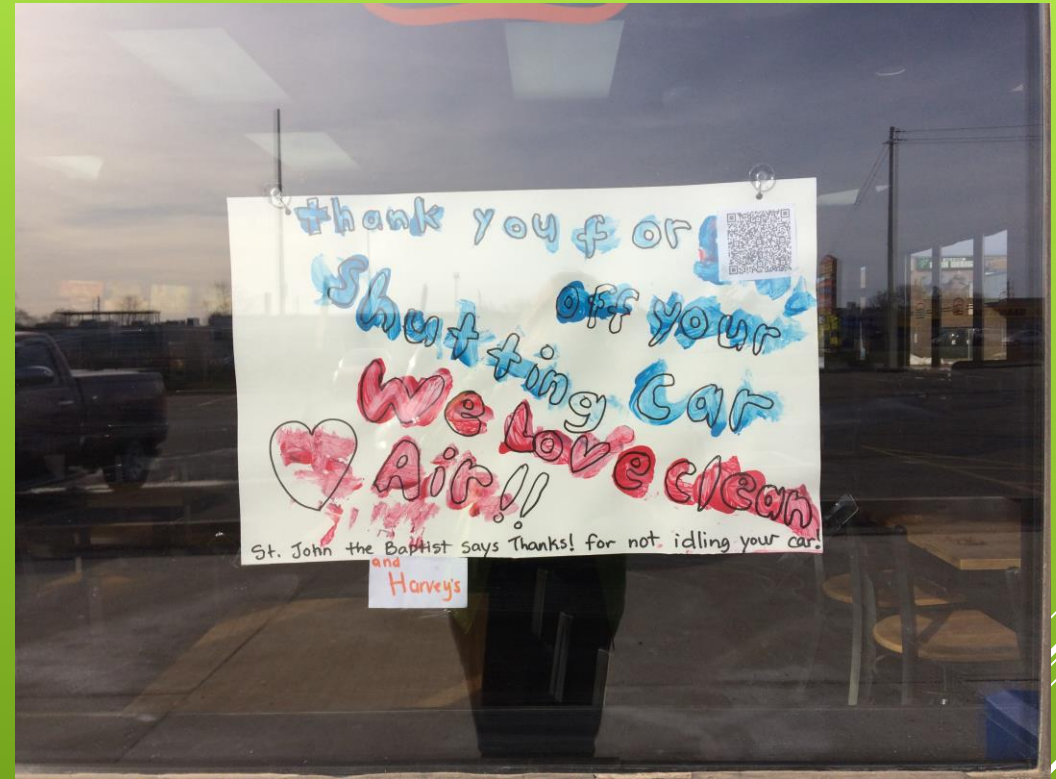 thank you for
Shutting off your
Car
We Love clean
Air!!
St. John the Baptist says Thanks! for not idling your car!
and
Harvey's